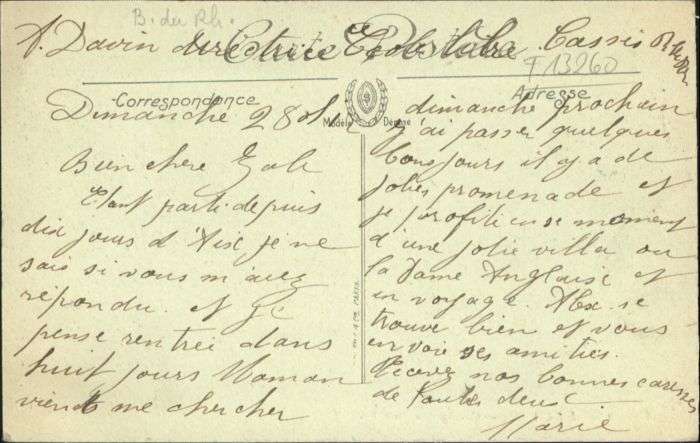 B. du Rh.
A. Davin directrice École libre Cassis B.d.R.
F 13260
Carte Postale
Correspondance
Adresse
Modèle Déposé
Dimanche 28
Bien chère
Etant partie depuis
dix jours d'Aix je ne
sais si vous m'avez
répondu. et je
pense rentrée dans
huit jours Maman
viend me chercher
dimanche prochain
j'ai passer quelques
bons jours il y a de
jolies promenade et
je profiti en se moment
d'une jolie villa ou
la Dame Anglaise et
en voyage Alex. se
trouve bien et vous
envoie ses amities.
Recevez nos bonnes caresses
de toutes deux
Marie